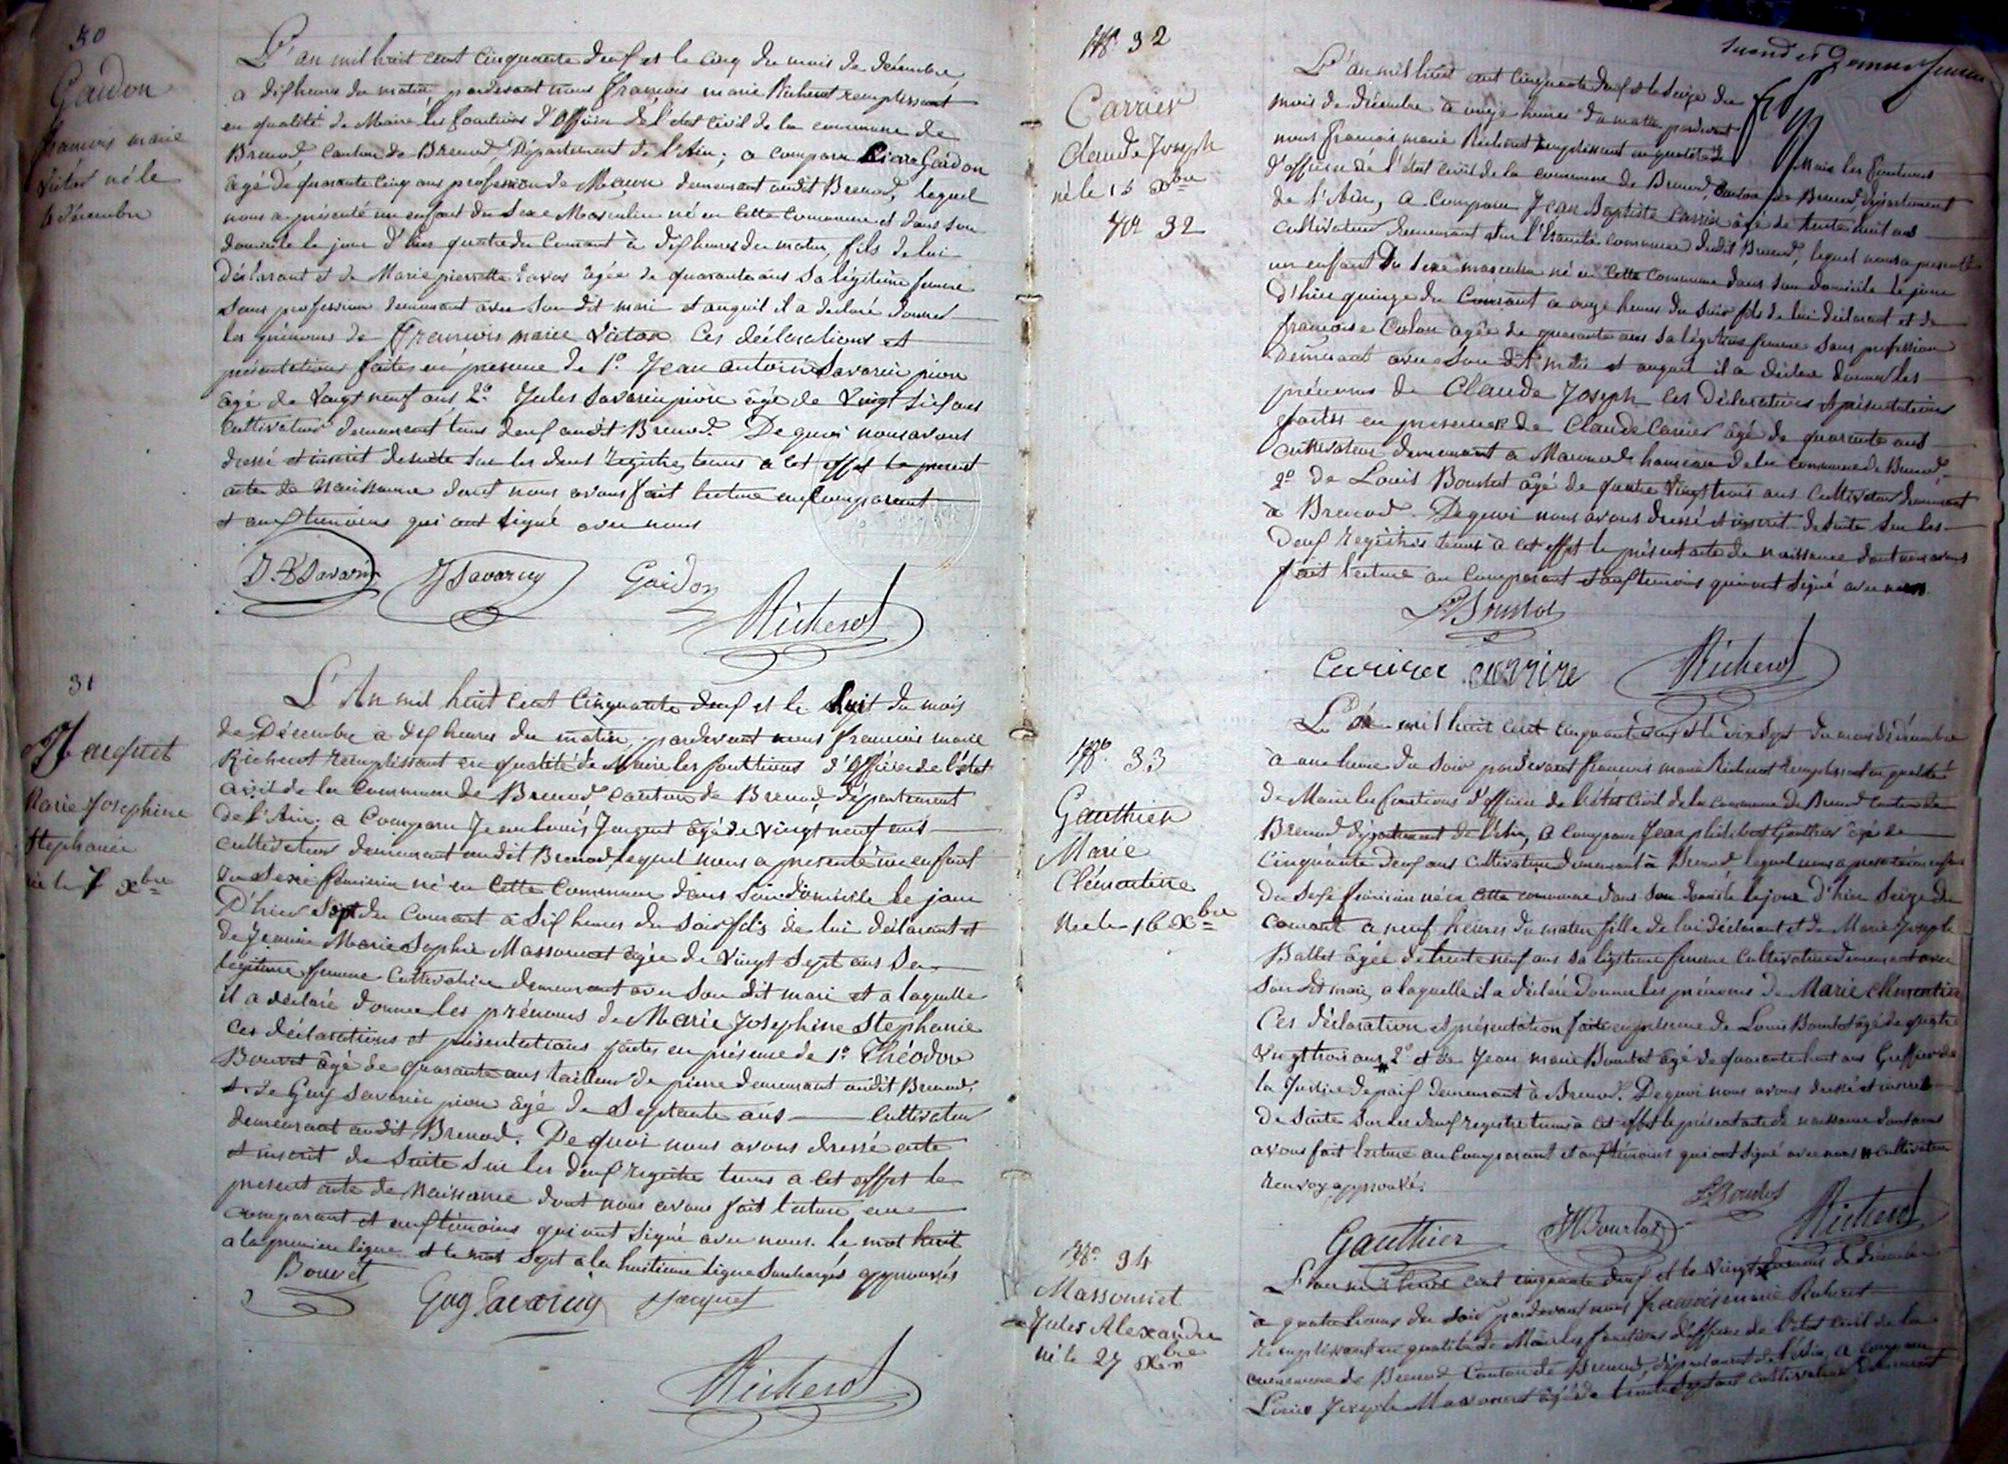 30
Gaidon
françois marie
Victor né le
4 décembre
L'an mil huit cent cinquante deuf et le cinq du mois de décembre
a dif heures du matin pardevant nous françois marie Richerot remplissant
en qualité de Maire les fonctions d'officier de l'état civil de la commune de
Brenod, canton de Brenod, Département de l'Ain; a comparu Gaidon
agé de quarante cinq ans profession de Maçon demeurant audit Brenod, lequel
nous a présenté un enfant du Sexe Masculin né en cette commune et dans son
domicile le jour d'hier quatre du courant à dif heures du matin, fils de lui
déclarant et de Marie pierrette agée de quarante ans sa légitime femme
sans profession demeurant avec son dit mari et auquel il a déclaré donner
les prénoms de françois marie Victor. Ces déclarations et
présentations faites en présence de 1º Jean antoine Savarin pion
âgé de Vingt neuf ans 2º Jules Savarin pion âgé de Vingt ans
Cultivateurs demeurant tous deuf audit Brenod. De quoi nous avons
dressé et inscrit desuite sur les deuf registres tenus a cet effet le présent
acte de naissance dont nous avons fait lecture au comparant
et auf temoins qui ont signé avec nous
J. Savarin J Savarin Gaidon
Richerot
31
Jacquet
Marie Josephine
Stephanie
née le 7 Xbre
L'An mil huit cent cinquante deuf et le huit du mois
de Décembre a dif heures du matin pardevant nous francois marie
Richerot remplissant en qualité de Maire les fonctions d'officier de l'état
civil de la commune de Brenod canton de Brenod département
de l'Ain; a comparu Jean Louis Jacquet âgé de Vingt neuf ans
cultivateur demeurant audit Brenod, lequel nous a présenté un enfant
du Sexe féminin né en cette commune dans son domicile le jour
D'hier Sept du courant à Sif heures du Soir fils de lui déclarant et
de Jeanne Marie Sophie Massonnet âgée de Vingt Sept ans Sa
légitime femme cultivatrice demeurant avec son dit mari et a laquelle
il a déclaré donner les prénoms de Marie Josephine Stephanie
Ces déclarations et présentations faites en présence de 1º Théodore
Bouvet âgé de quarante ans tailleur de pierre demeurant audit Brenod,
2º de Guy Savarin pion âgé de Septante ans cultivateur
demeurant audit Brenod. De quoi nous avons dressé acte
et inscrit de Suite Sur les deuf registre tenus a cet effet le
présent acte de naissance dont nous avons fait lecture au
comparant et auf témoins qui ont signé avec nous. le mot huit
a la première ligne et le mot Sept a la huitième ligne Surchargés approuvés
Bouvet Guy Savarin Jacquet
Richerot
Nº 32
Carrier
Claude Joseph
né le 15 Xbre
Nº 32
L'an mil huit cent cinquante deuf et le Seize du
mois de décembre à onze heures du matin pardevant
nous francois marie Richerot remplissant en qualité de
Maire les fonctions
d'officier de l'état civil de la commune de Brenod, canton de Brenod, département
de l'Ain, a comparu Jean Baptiste Carrier âgé de trente huit ans
cultivateur demeurant sur commune dudit Brenod, lequel nous a présenté
un enfant du Sexe masculin né en cette commune dans son domicile le jour
d'hier quinze du Courant a onze heures du Soir fils de lui déclarant et de
françoise Colon agée de quarante ans sa légitime femme sans profession
demeurant avec son dit mari et auquel il a déclaré donner les
prénoms de Claude Joseph Ces déclarations et présentations
faites en presence de Claude Carrier âgé de quarante ans
cultivateur demeurant a hameau de la commune de Brenod,
2º de Louis Bourbot âgé de quatre Vingt trois ans Cultivateur demeurant
à Brenod. De quoi nous avons dressé et inscrit de suite sur les
deuf registres tenus à cet effet le présent acte de naissance dont nous avons
fait lecture au comparant et auf temoins qui ont signé avec nous
Richerot
Nº 33
Gauthier
Marie
Clémentine
Née le 16 Xbre
L'an mil huit cent cinquante deuf et le dix sept du mois de décembre
à une heure du soir pardevant francois marie Richerot remplissant en qualité
de Maire les fonctions d'officier de l'état civil de la commune de Brenod canton de
Brenod département de l'Ain, a comparu Jean philibert Gauthier âgé de
Cinquante deuf ans cultivateur demeurant à Brenod lequel nous a présenté un enfant
du Sexe féminin né en cette commune dans son domicile le jour d'hier Seize du
courant a neuf heures du matin fille de lui déclarant et de Marie Joseph
Ballet âgée de trente neuf ans sa légitime femme cultivatrice demeurant avec
son dit mari, a laquelle il a déclaré donner les prénoms de Marie Clementine
Ces déclaration et présentation faites en présence de Louis Bourbot âgé de quatre
vingt trois ans 2º et de Jean marie Bourbot âgé de quarante huit ans Greffier de
la Justice de paif demeurant à Brenod. De quoi nous avons dressé et inscrit
de suite sur les deuf registre tenus à cet effet le présent acte de naissance dont nous
avons fait lecture au comparant et auf témoins qui ont signé avec nous # cultivateur
renvoy approuvé.
Gauthier Richerot
Nº 34
Massonnet
Jules Alexandre
né le 27 Xbre
L'an mil huit cent cinquante deuf et le Vingt de décembre
à quatre heures du soir pardevant nous francois marie Richerot
remplissant en qualité de Maire les fonctions d'officier de l'état civil de la
commune de Brenod Canton de Brenod, département de l'Ain, a comparu
Louis Joseph Massonnet âgé de trente Sept ans cultivateur demeurant